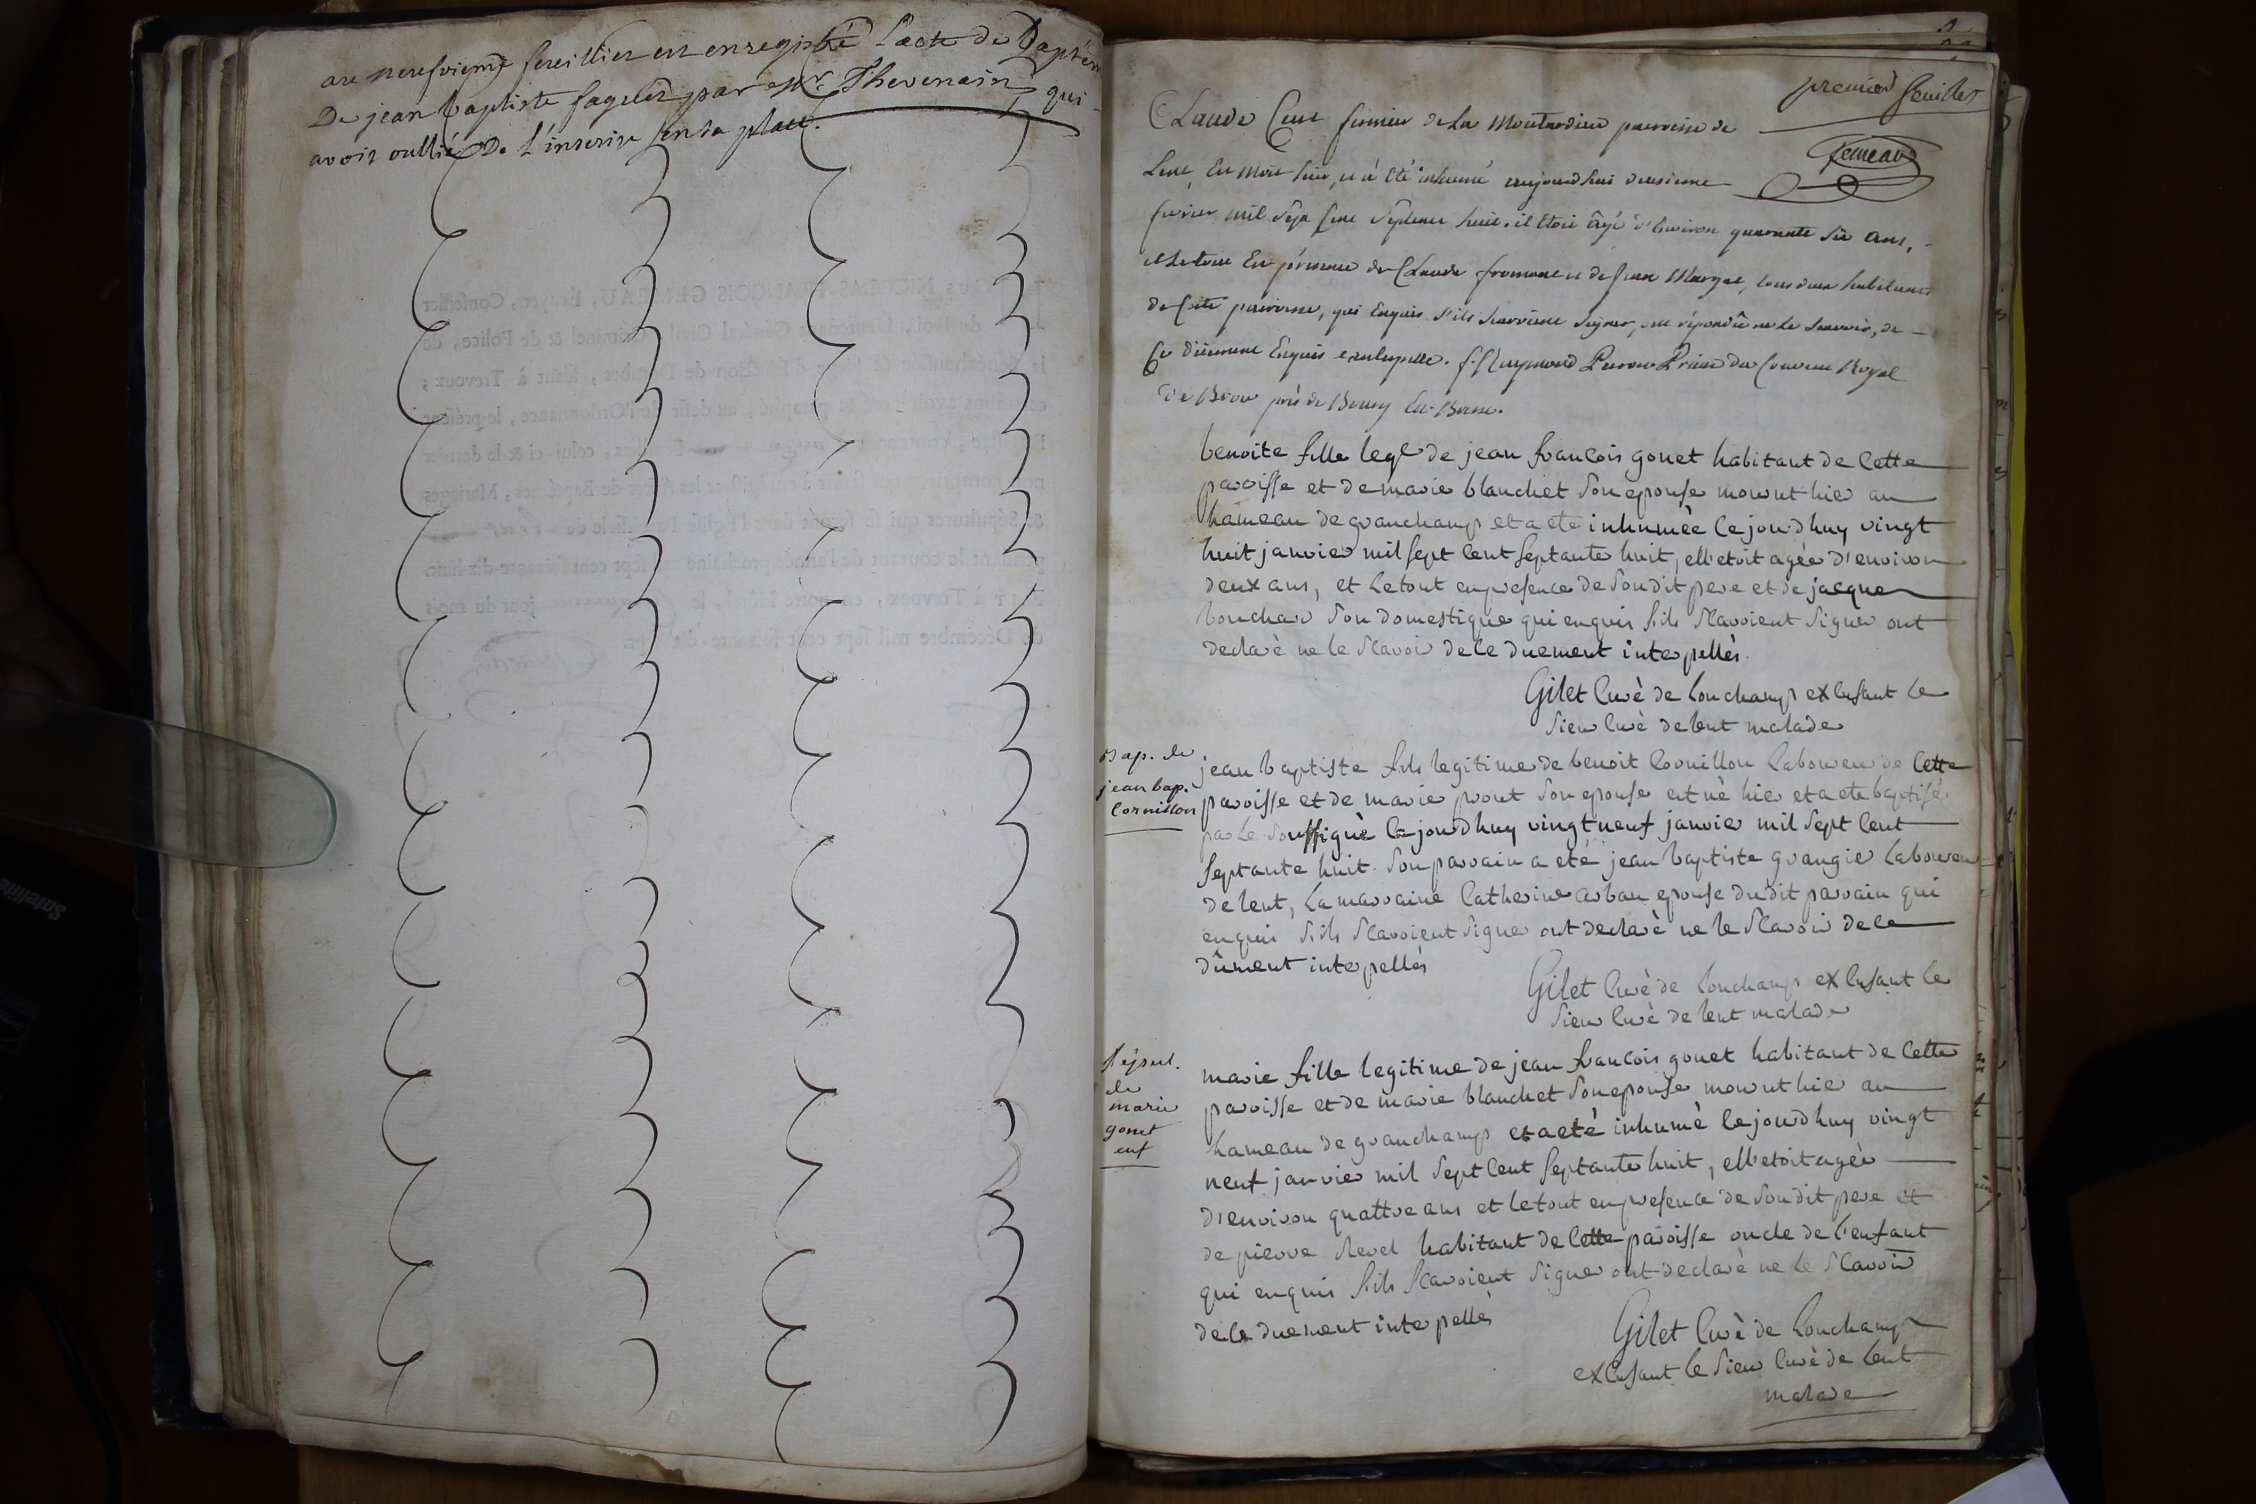 au neufvieme feuillet est enregistré l'acte de Baptem
De jean baptiste fagelet par mr. Thevenain qui
avoit oullié De l'inscrire en sa place.
premier feuillet
Claude Cent fermier de la Moutardiere parroisse de
Lent, Est mort hier, et a été inhumé aujourdhui deuxieme
fevrier mil sept cent septante huit. il étoit âgé d'Environ quarante six ans,
et le tout En présence de Claude fromont et de Jean Margel, tous deux habitants
de Cette parroisse, qui Enquis s'ils sçavoient signer, ont répondû ne le sçavoir, de
Ce düement Enquis et interpellé. f. Raymond Perron Prieur du Couvent Royal
de Brou près de Bourg En-Bresse.
benoite fille legᵉ de jean francois gonet habitant de cette
paroisse et de marie blanchet son epouse mourut hier au
hameau de granchamp et a ete inhumèe cejourdhuy vingt
huit janvier mil sept cent septante huit, ell'etoit agèe d'environ
deux ans, et le tout en presence de son dit pere et de jacque
bouchar son domestique qui enquis sils scavoient signer ont
declarè ne le scavoir de ce duement interpellès.
Gilet curè de Conchamp excusant le
sieur curè de lent malade
Bap. de
jean bap.
Cornillon
jean baptiste fils legitime de benoit Cornillon laboureur de cette
paroisse et de marie prout son epouse est nè hier et a ete baptisé
par le soussignè cejourdhuy vingt neuf janvier mil sept cent
septante huit. son parrain a eté jean baptiste grangie laboureur
de lent, la marraine Catherine arban epouse dudit parrain qui
enquis sils scavoient signer ont declarè ne le scavoir de ce
dûment interpellés
Gilet curè de Conchamp excusant le
sieur curè de lent malade
sépul.
de
marie
gonet
enf
marie fille legitime de jean francois gonet habitant de cette
paroisse et de marie blanchet son epouse mourut hier au
hameau de granchamp et a eté inhumè cejourdhuy vingt
neuf janvier mil sept cent septante huit, ell'etoit agèe
d'environ quattre ans et le tout en presence de son dit pere et
de pierre revel habitant de cette paroisse oncle de l'enfant
qui enquis sils scavoient signer ont declarè ne le scavoir
de ce duement interpellès
Gilet curè de Conchamp
excusant le sieur curè de lent
malade